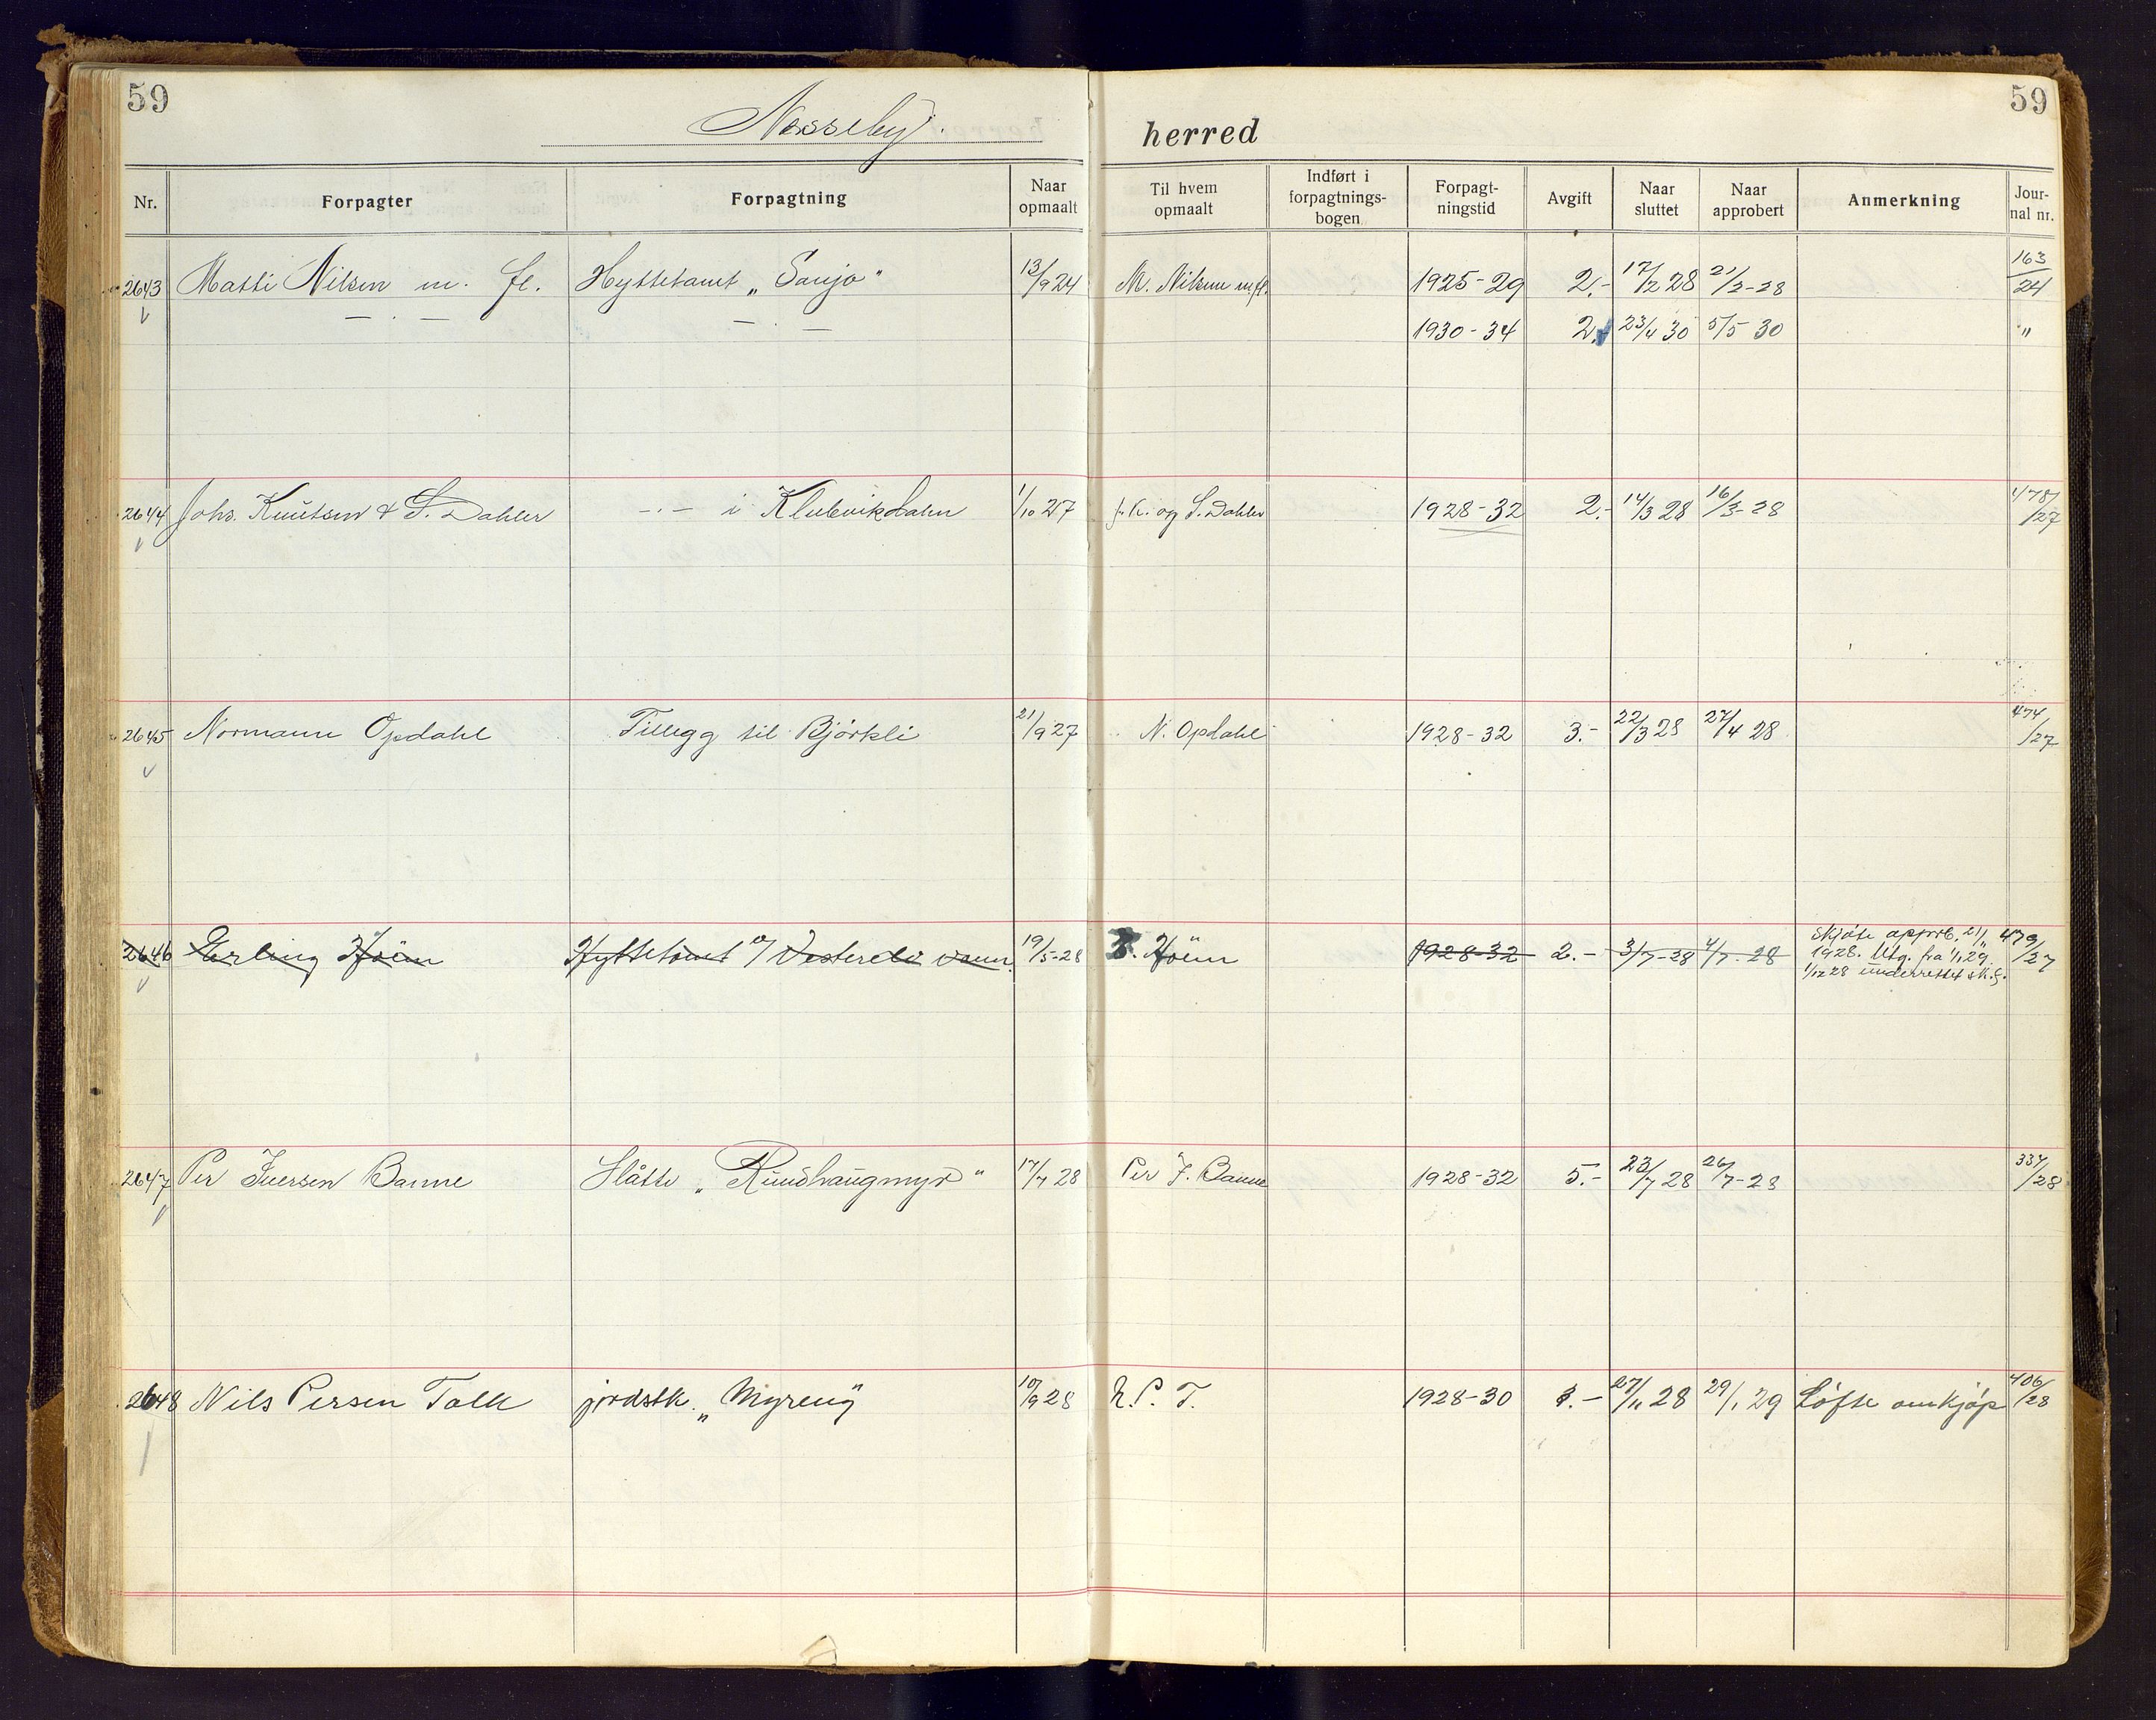 59
59
Nesseby.
herred
Nr. Forpagter Forpagtning Naar opmaalt Til hvem opmaalt Indført i forpagtnings-bogen Forpagt-ningstid Avgift Naar sluttet Naar approbert Anmerkning Jour-nal nr.
2643 Matti Nilsen m. fl. Hyttetomt „Sanjo" 13/9 24 M. Nilsen m/fl. 1925-29 2.- 17/2 28 21/2-28 163/24
— . — — . — 1930-34 2.- 23/4 30 5/5 30 "
2644 Johs. Knutsen & S. Dahler — . — i Klubvikdalen 1/10 27 J. K. og S. Dahler 1928-32 2.- 14/3 28 16/3-28 478/27
2645 Normann Opdahl Tillegg til Björkli 21/9 27 N. Opdahl 1928-32 3.- 22/3 28 27/4 28 474/27
2646 Erling Hoem Hyttetomt v/ Vesterelv vann. 19/5-28 E. Hoem 1928-32 2.- 3/7-28 4/7-28 Skjöte approb. 21/11 479/27
1928. Utg. fra 1/1 29.
1/12 28 underrettet sk.f.
2647 Per Iversen Banne Slåtte „Rundhaugmyr" 17/7 28 Per I. Banne 1928-32 5.- 23/7 28 26/7-28 334/28
2648 Nils Persen Talk jordstk. „Myreng" 10/9 28 N. P. T. 1928-30 27/11 28 29/1 29 Löfte om kjöp 406/28